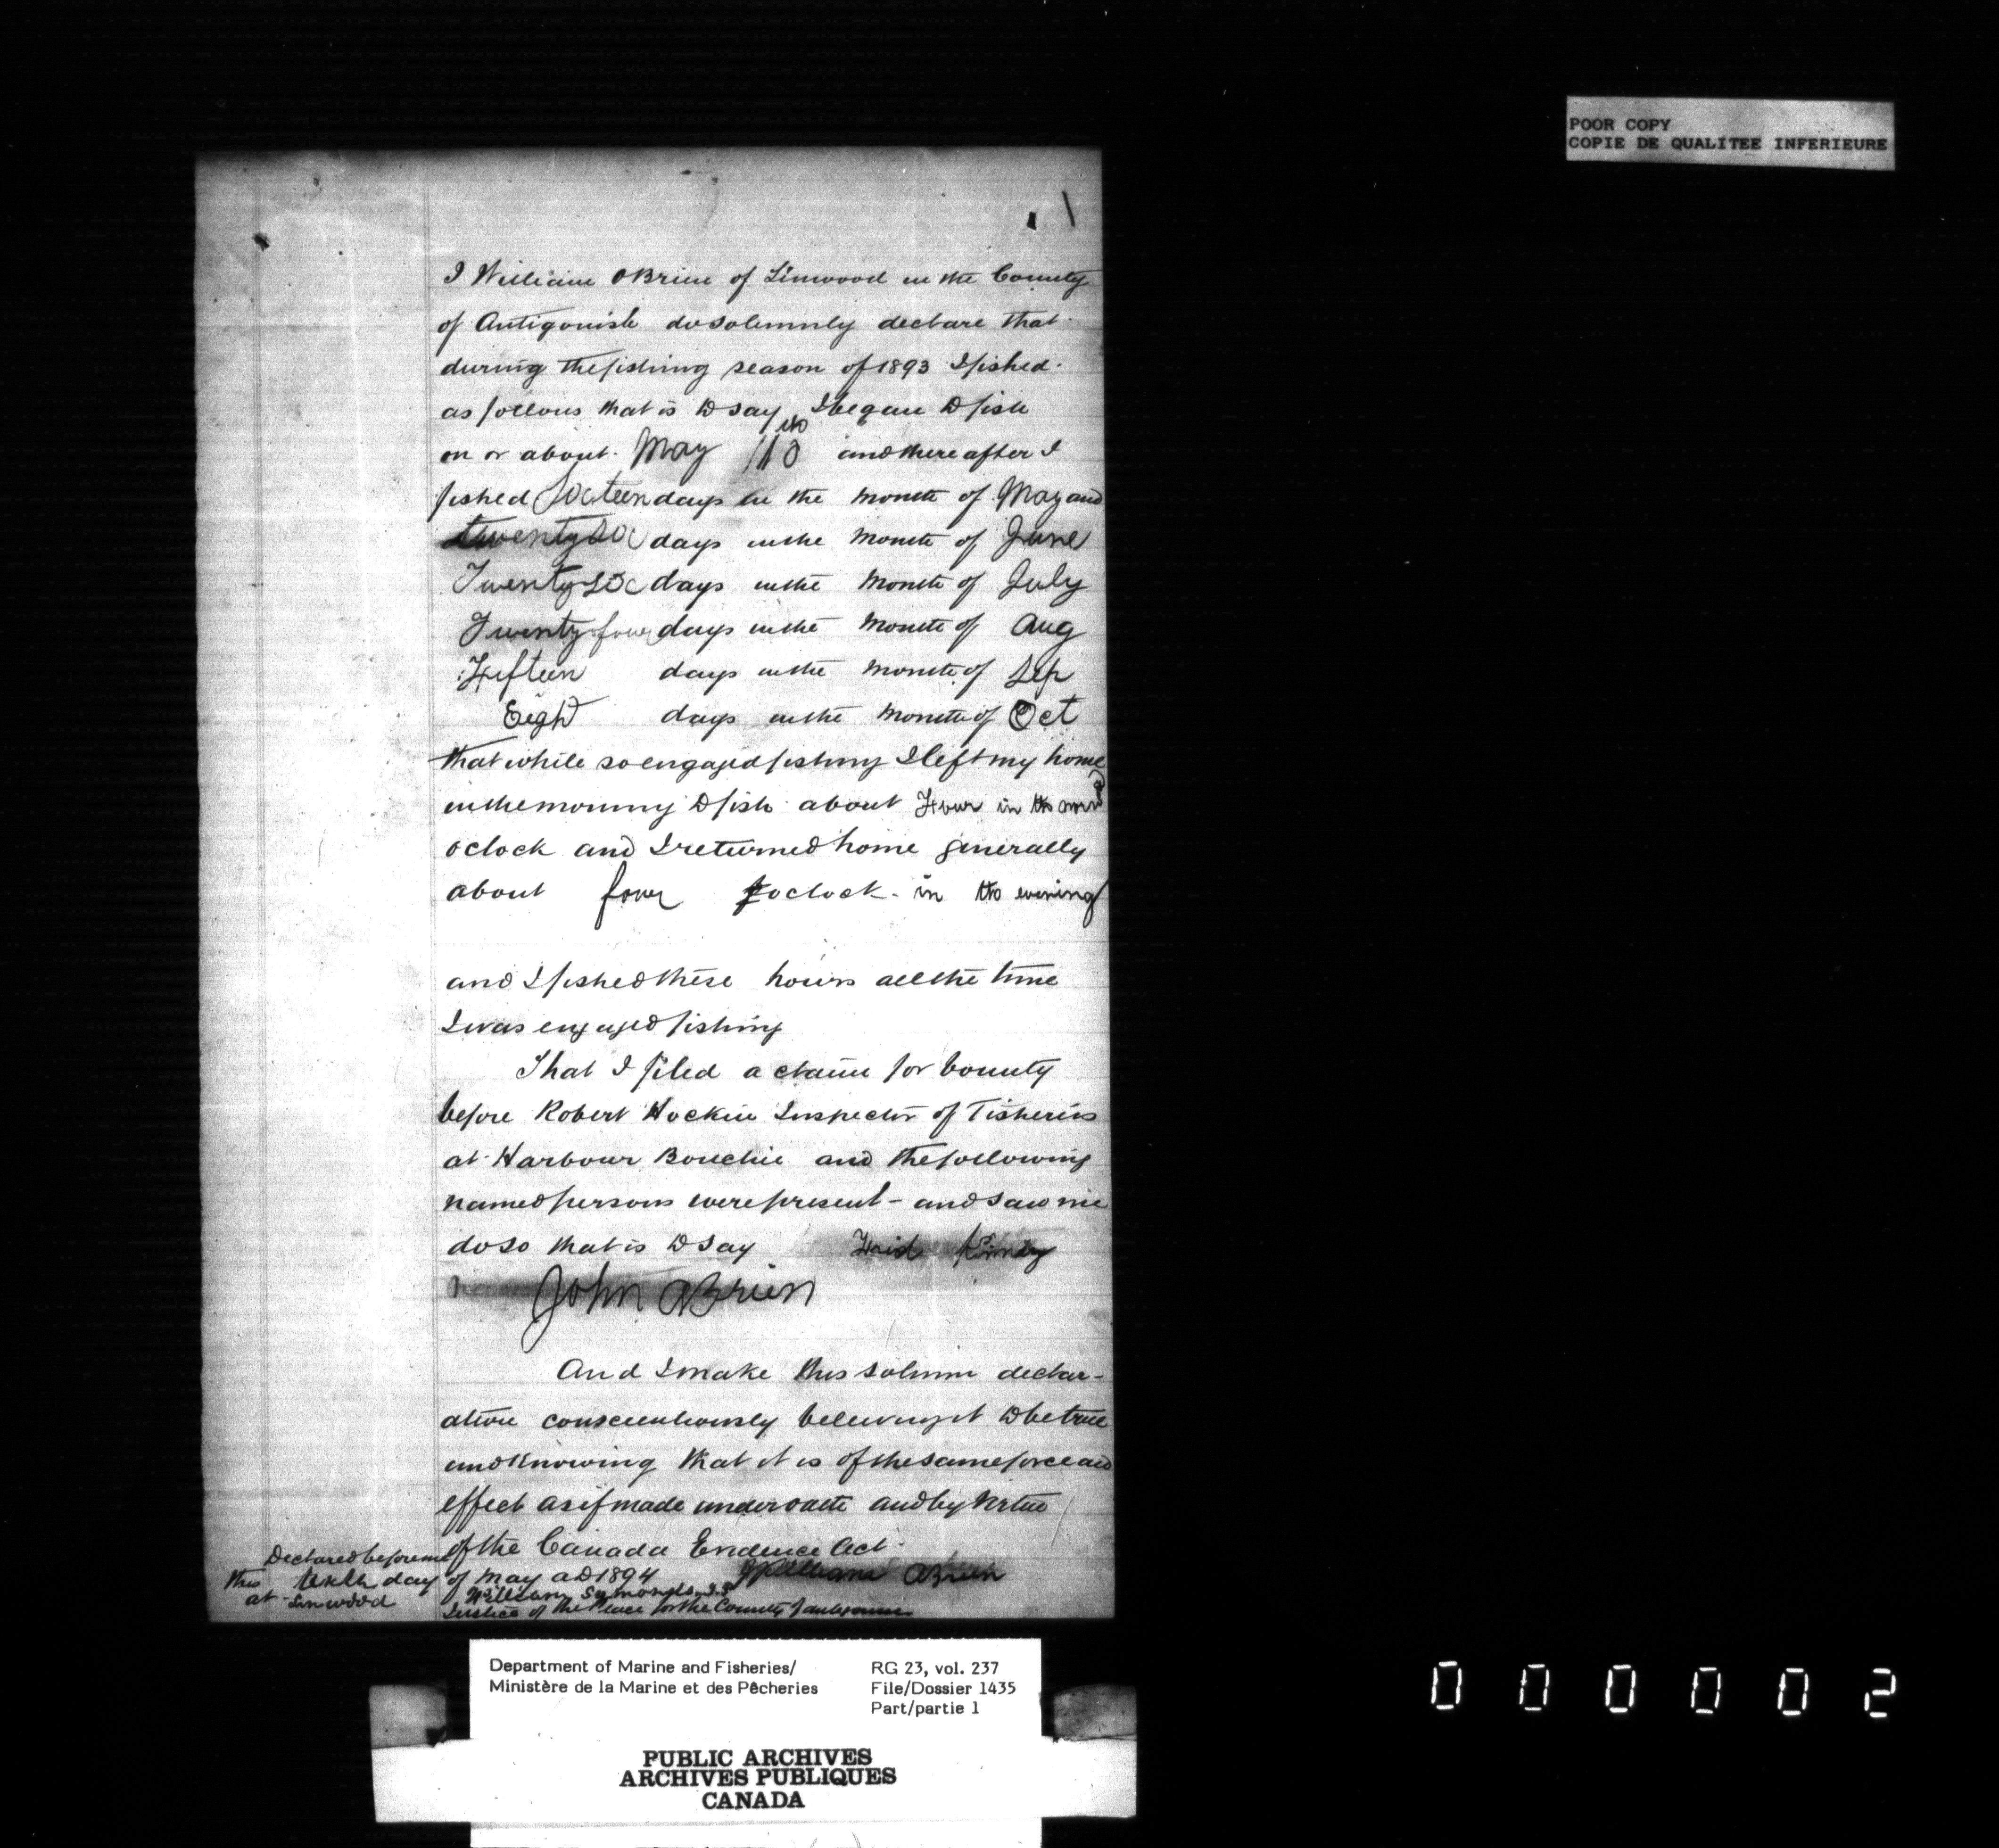 POOR COPY
COPIE DE QUALITEE INFERIEURE
I William OBrien of Linwood in the County
of Antigonish do solemnly declare that
during the fishing season of 1893 I fished
as follows that is to say I began to fish
on or about May the and thereafter I
fished Sixteen days in the month of May and
twenty six days in the month of June
Twenty six days in the month of July
Twenty four days in the month of Aug
Fifteen days in the month of Sep
Eight days in the month of Oct
that while so engaged fishing I left my home
in the morning to fish about Four in the
oclock and I returned home generally
about four oclock in the evening
and I fished these hours all the time
I was engaged fishing
That I filed a claim for bounty
before Robert Hockin Inspector of Fisheries
at Harbour Bouchie and the following
named persons were present - and saw me
do so that is to say
John OBrien
And I make this solemn declar-
ation conscientiously believing it to be true
and knowing that it is of the same force and
effect as if made under oath and by virtue
of the Canada Evidence Act.
Declared before me
this tenth day of May AD 1894 William OBrien
at Linwood William Symonds J.P
Justice of the Peace for the County of
Department of Marine and Fisheries/
Ministère de la Marine et des Pêcheries
RG 23, vol. 237
File/Dossier 1435
Part/partie 1
PUBLIC ARCHIVES
ARCHIVES PUBLIQUES
CANADA
000002